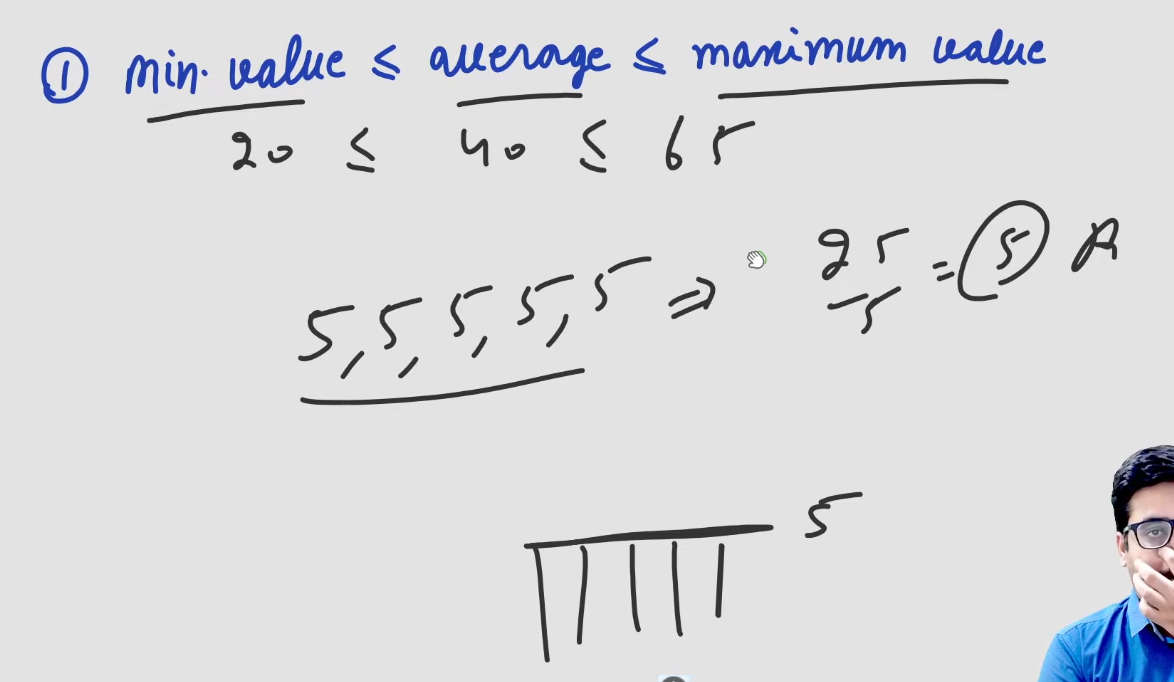 ① min. value ≤ average ≤ maximum value
20 ≤ 40 ≤ 65
5, 5, 5, 5, 5 ⇒ 25/5 = 5 A
5